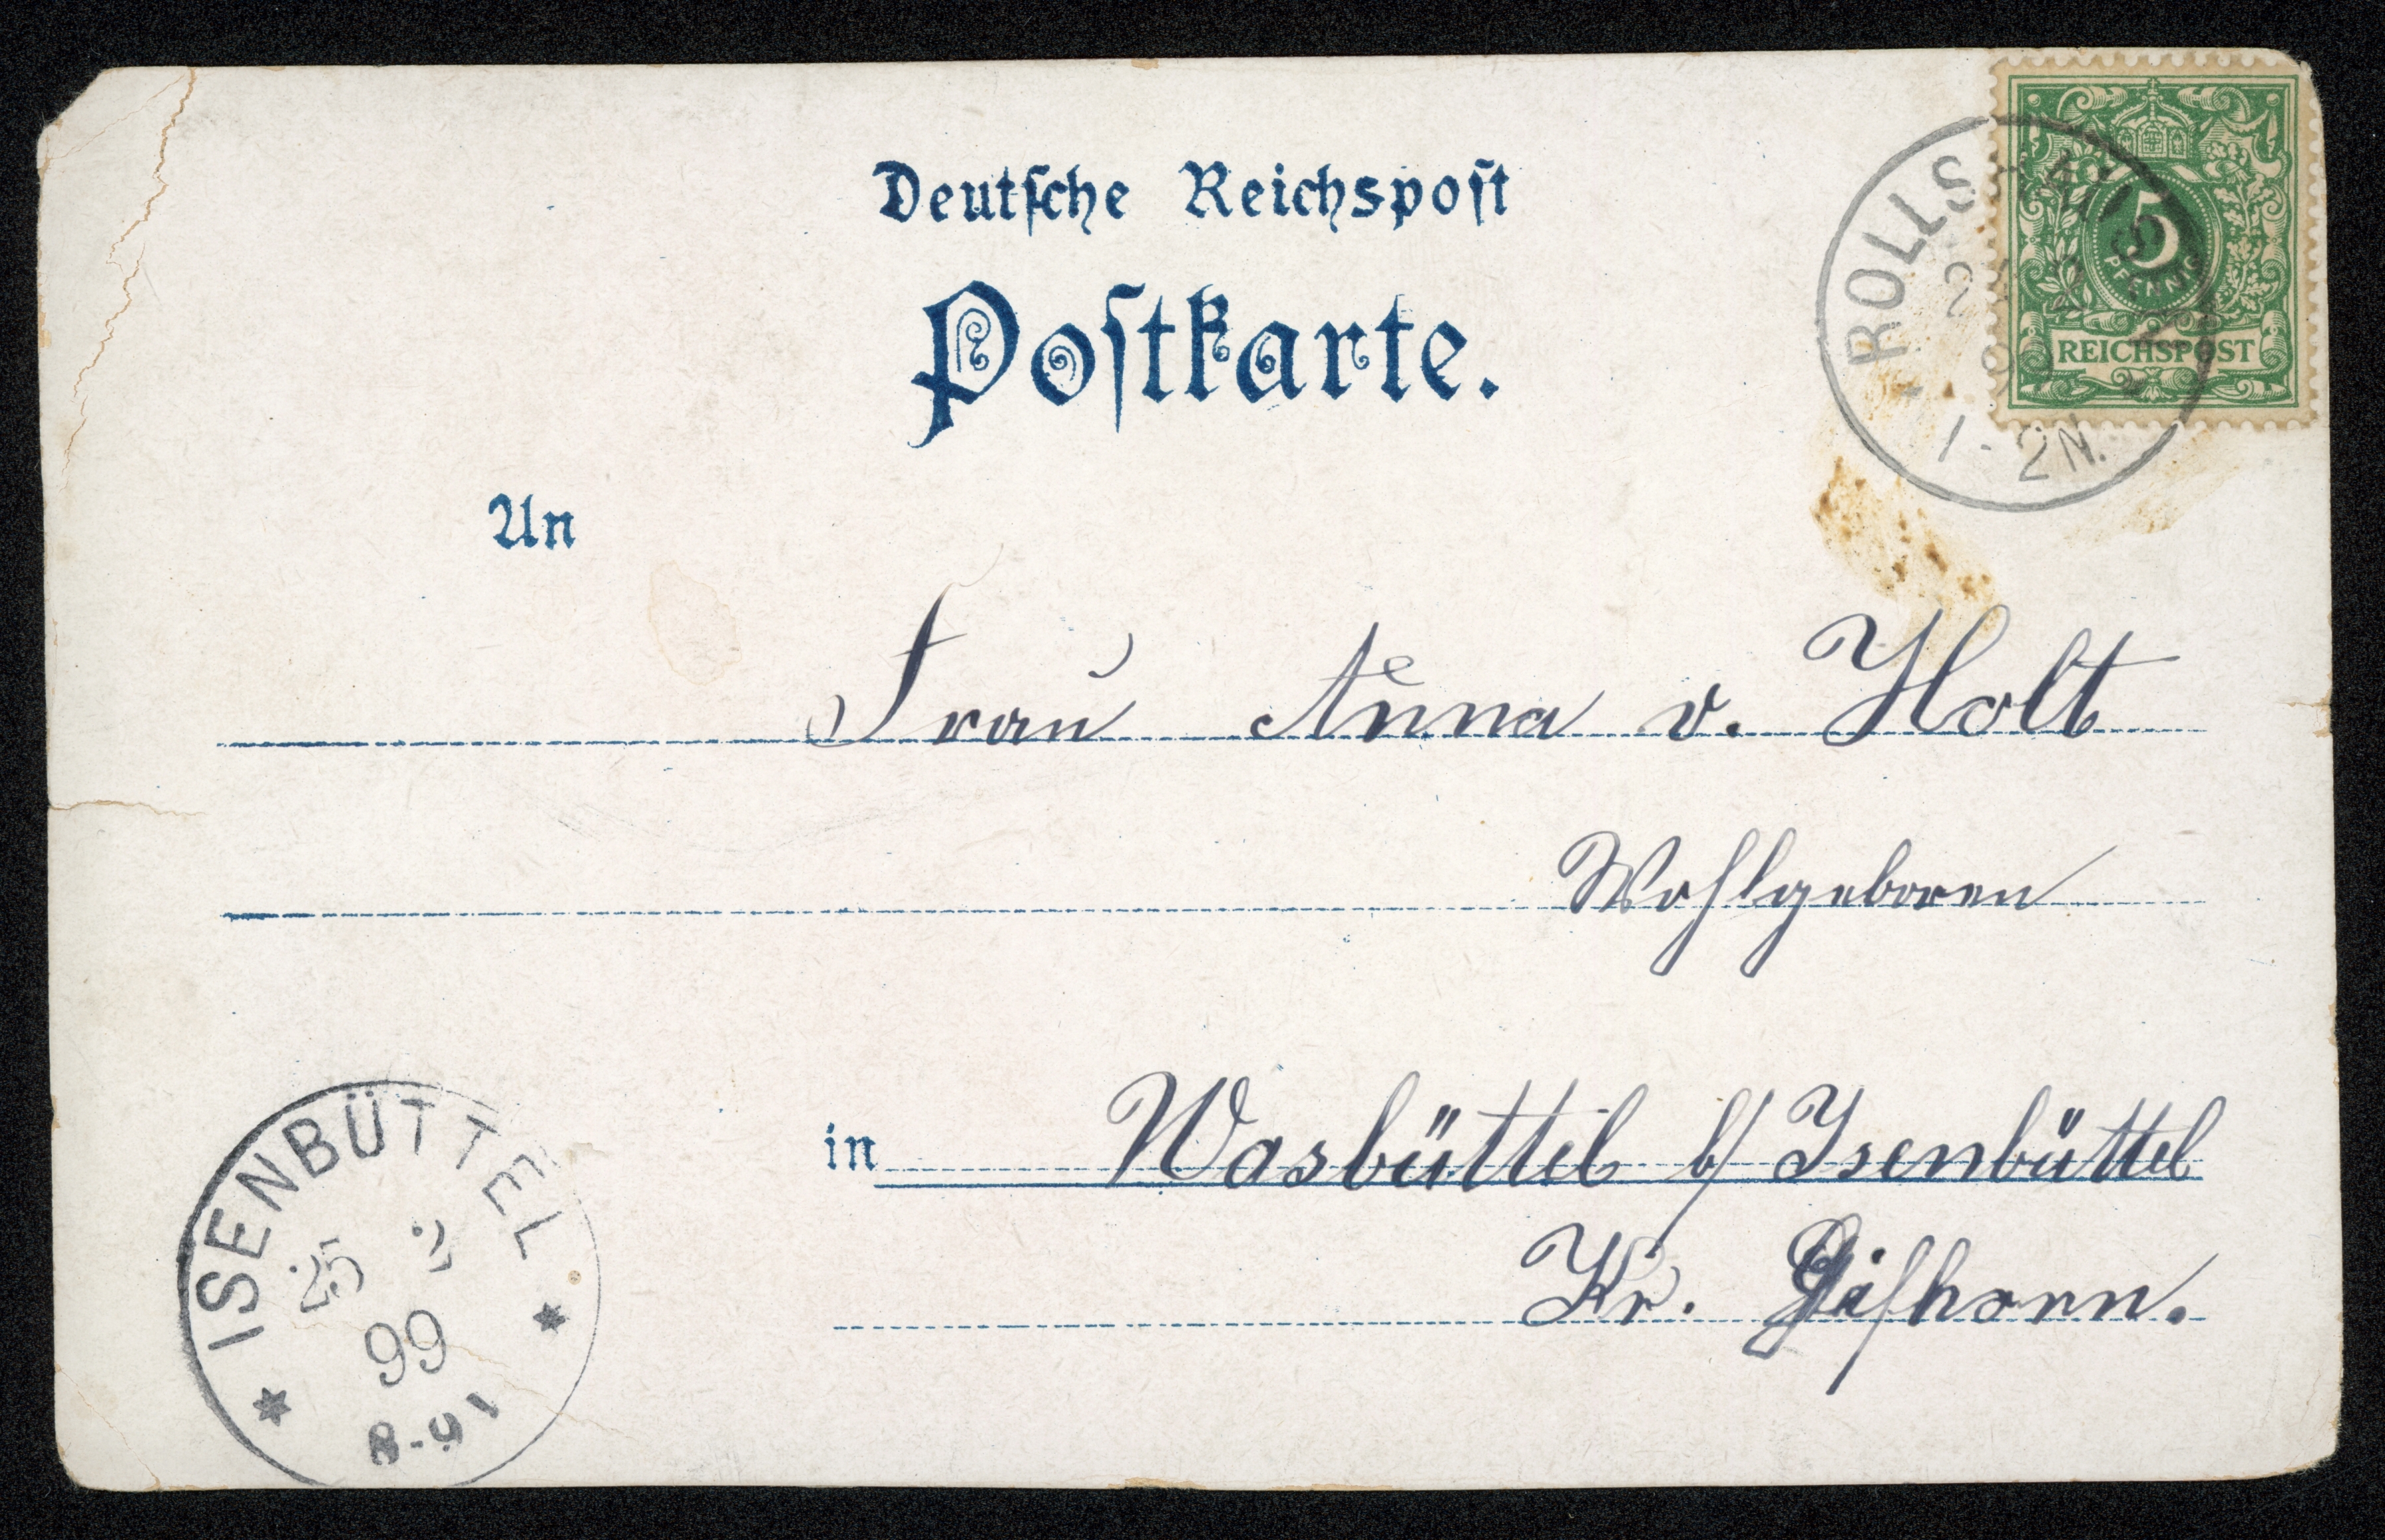 Deutsche Reichspost
Postkarte.
An
Frau Anna v. Holt
Wohlgeboren
in Wasbüttel b/ Isenbüttel
Kr. Gifhorn.
ROLLSHAUSEN
1-2N.
5
PFENNIG
REICHSPOST
ISENBÜTTEL
25 2
99
8-9V